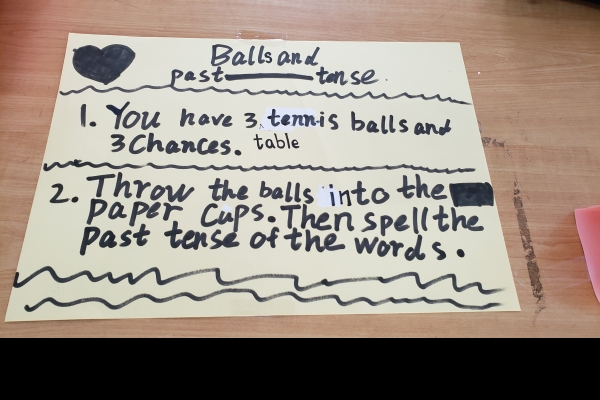 Balls and
past tense.
1. You have 3 tennis balls and
table
3 Chances.
2. Throw the balls into the
paper cups. Then spell the
past tense of the words.